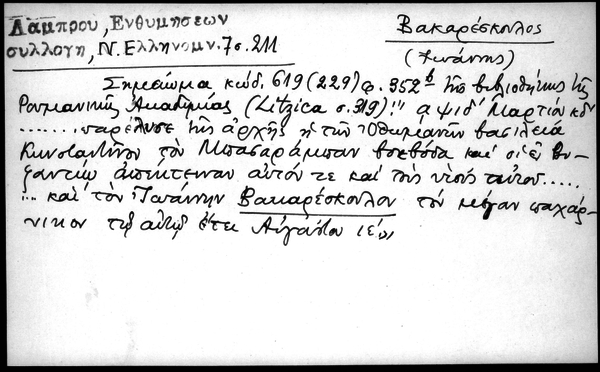 Λάμπρου, Ενθυμήσεων
συλλογή, Ν. Ελληνομν. 7 σ. 211
Βακαρέσκουλος
(Ιωάννης)
Σημείωμα κώδ. 619 (229) φ. 352β τῆς βιβλιοθήκης τῆς
Ρουμανικῆς Ἀκαδημίας (Litzica σ. 319) !! αψιδ' Μαρτίου κδ'
....... παρέλυσε τῆς ἀρχῆς ἡ τῶν Ὀθωμανῶν βασιλεία
Κωνσταντῖνον τὸν Μπασαράμπαν βοεβόδα καὶ οἱ ἐν Βυ-
ζαντίῳ ἀπέκτειναν αὐτόν τε καὶ τοὺς υἱοὺς τούτου .....
... καὶ τὸν Ἰωάννην Βακαρέσκουλον τὸν μέγαν παχάρ-
νικον τῷ αὐτῷ ἔτει Αὐγούστου ιε΄»